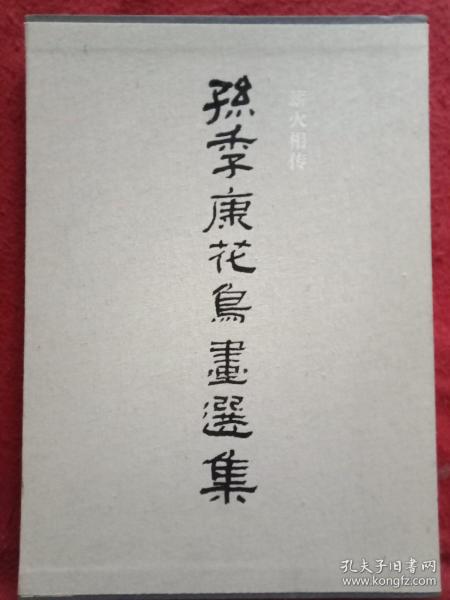 薪火相传
孫季康花鳥畫選集
孔夫子旧书网
www.kongfz.com